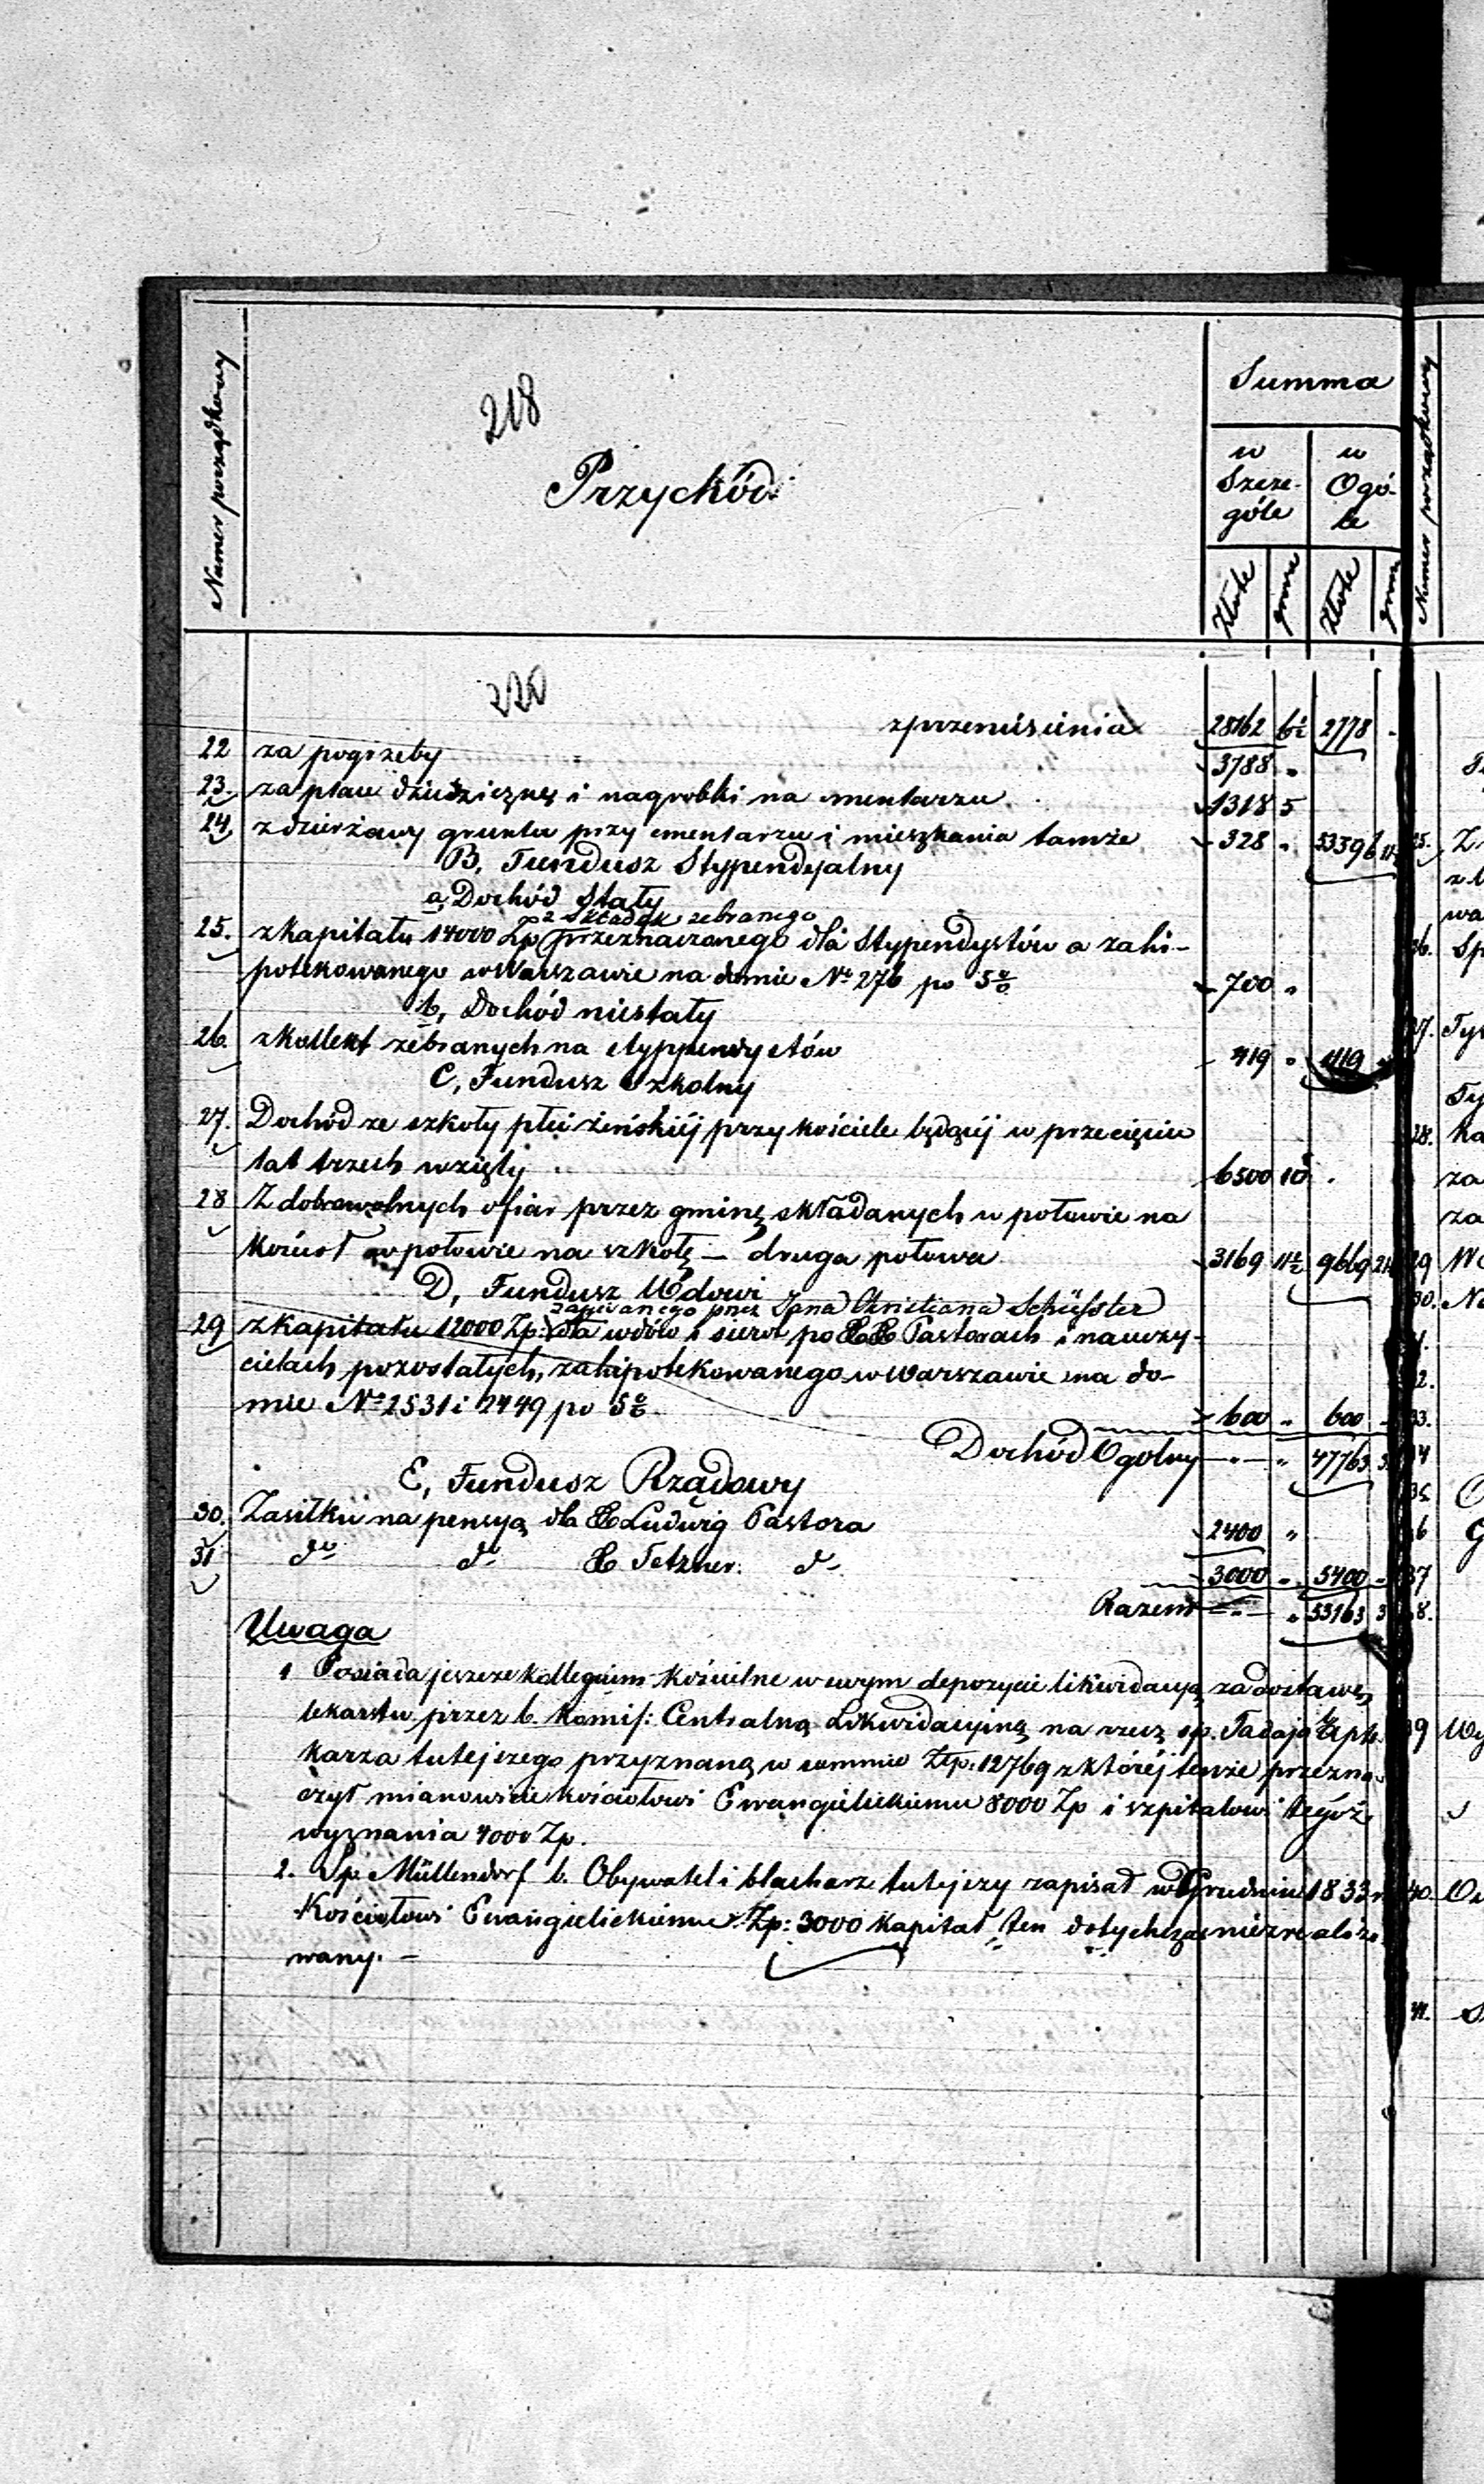 Numer porządkowy
218
Przychód
Summa
w Szcze-góle
w Ogó-le
Złote
grosze
Złote
220
z przeniesienia 28162 6½ 2778 -
22 za pogrzeby 3788 "
23. za place dziedziczne i nagrobki na smentarzu 1318 5
24 z dzierżawy gruntu przy smentarzu i mieszkania tamże 328 "
B, Fundusz Stypendyalny
a, Dochód Stały
z składek zebranego
25. z kapitału 14000 Zp przeznaczonego dla Stypendystów a zahi-
potekowanego w Warszawie na domie No 276 po 5% 700 "
b, Dochód niestały
26 z kollekt zebranych na styppendystów 419 " 1119
C, Fundusz Szkolny
27. Dochód ze szkoły płci żeńskiéj przy kościele będącéj w przecięciu
lat trzech wzięty 6500 10
28 Z dobrowolnych ofiar przez gminę składanych w połowie na
kościoł w połowie na szkołę – druga połowa 3169 11½ 9669 21½
D, Fundusz Wdowi
zapisanego przez Jana Christiana Schüssler
29 z kapitału 12000 Zp: dla wdów i sierot po Pastorach i nauczy-
cielach pozostałych, zahipotekowanego w Warszawie na do-
mie No 2531 i 2449 po 5% 600 " 600 -
Dochód Ogólny " 47763 3
E, Fundusz Rządowy
30. Zasiłku na pensyą dla Ludwig Pastora 2400 "
31 do do Tetzner. do 3000 " 5400 -
Razem " 53163 3
Uwaga
1 Posiada jeszcze kollegium kościelne w swym depozycie likwidacyą za dostawę
lekarstw przez b. Komis: Centralną Likwidacyiną na rzecz sp. Tadaja Apte-
karza tutejszego przyznaną w summie Złp: 12769 z któréj tenże przezna-
czył mianowicie kościołowi Ewangielickiemu 8000 Zp i szpitalowi tegoż
wyznania 4000 Zp.
2. Sp. Müllendorf b. Obywatel i blacharz tutejszy zapisał w Grudniu 1833 r
Kościołowi Ewangielickiemu Zp: 3000 Kapitał ten dotychczas niezrealizo
wany. –